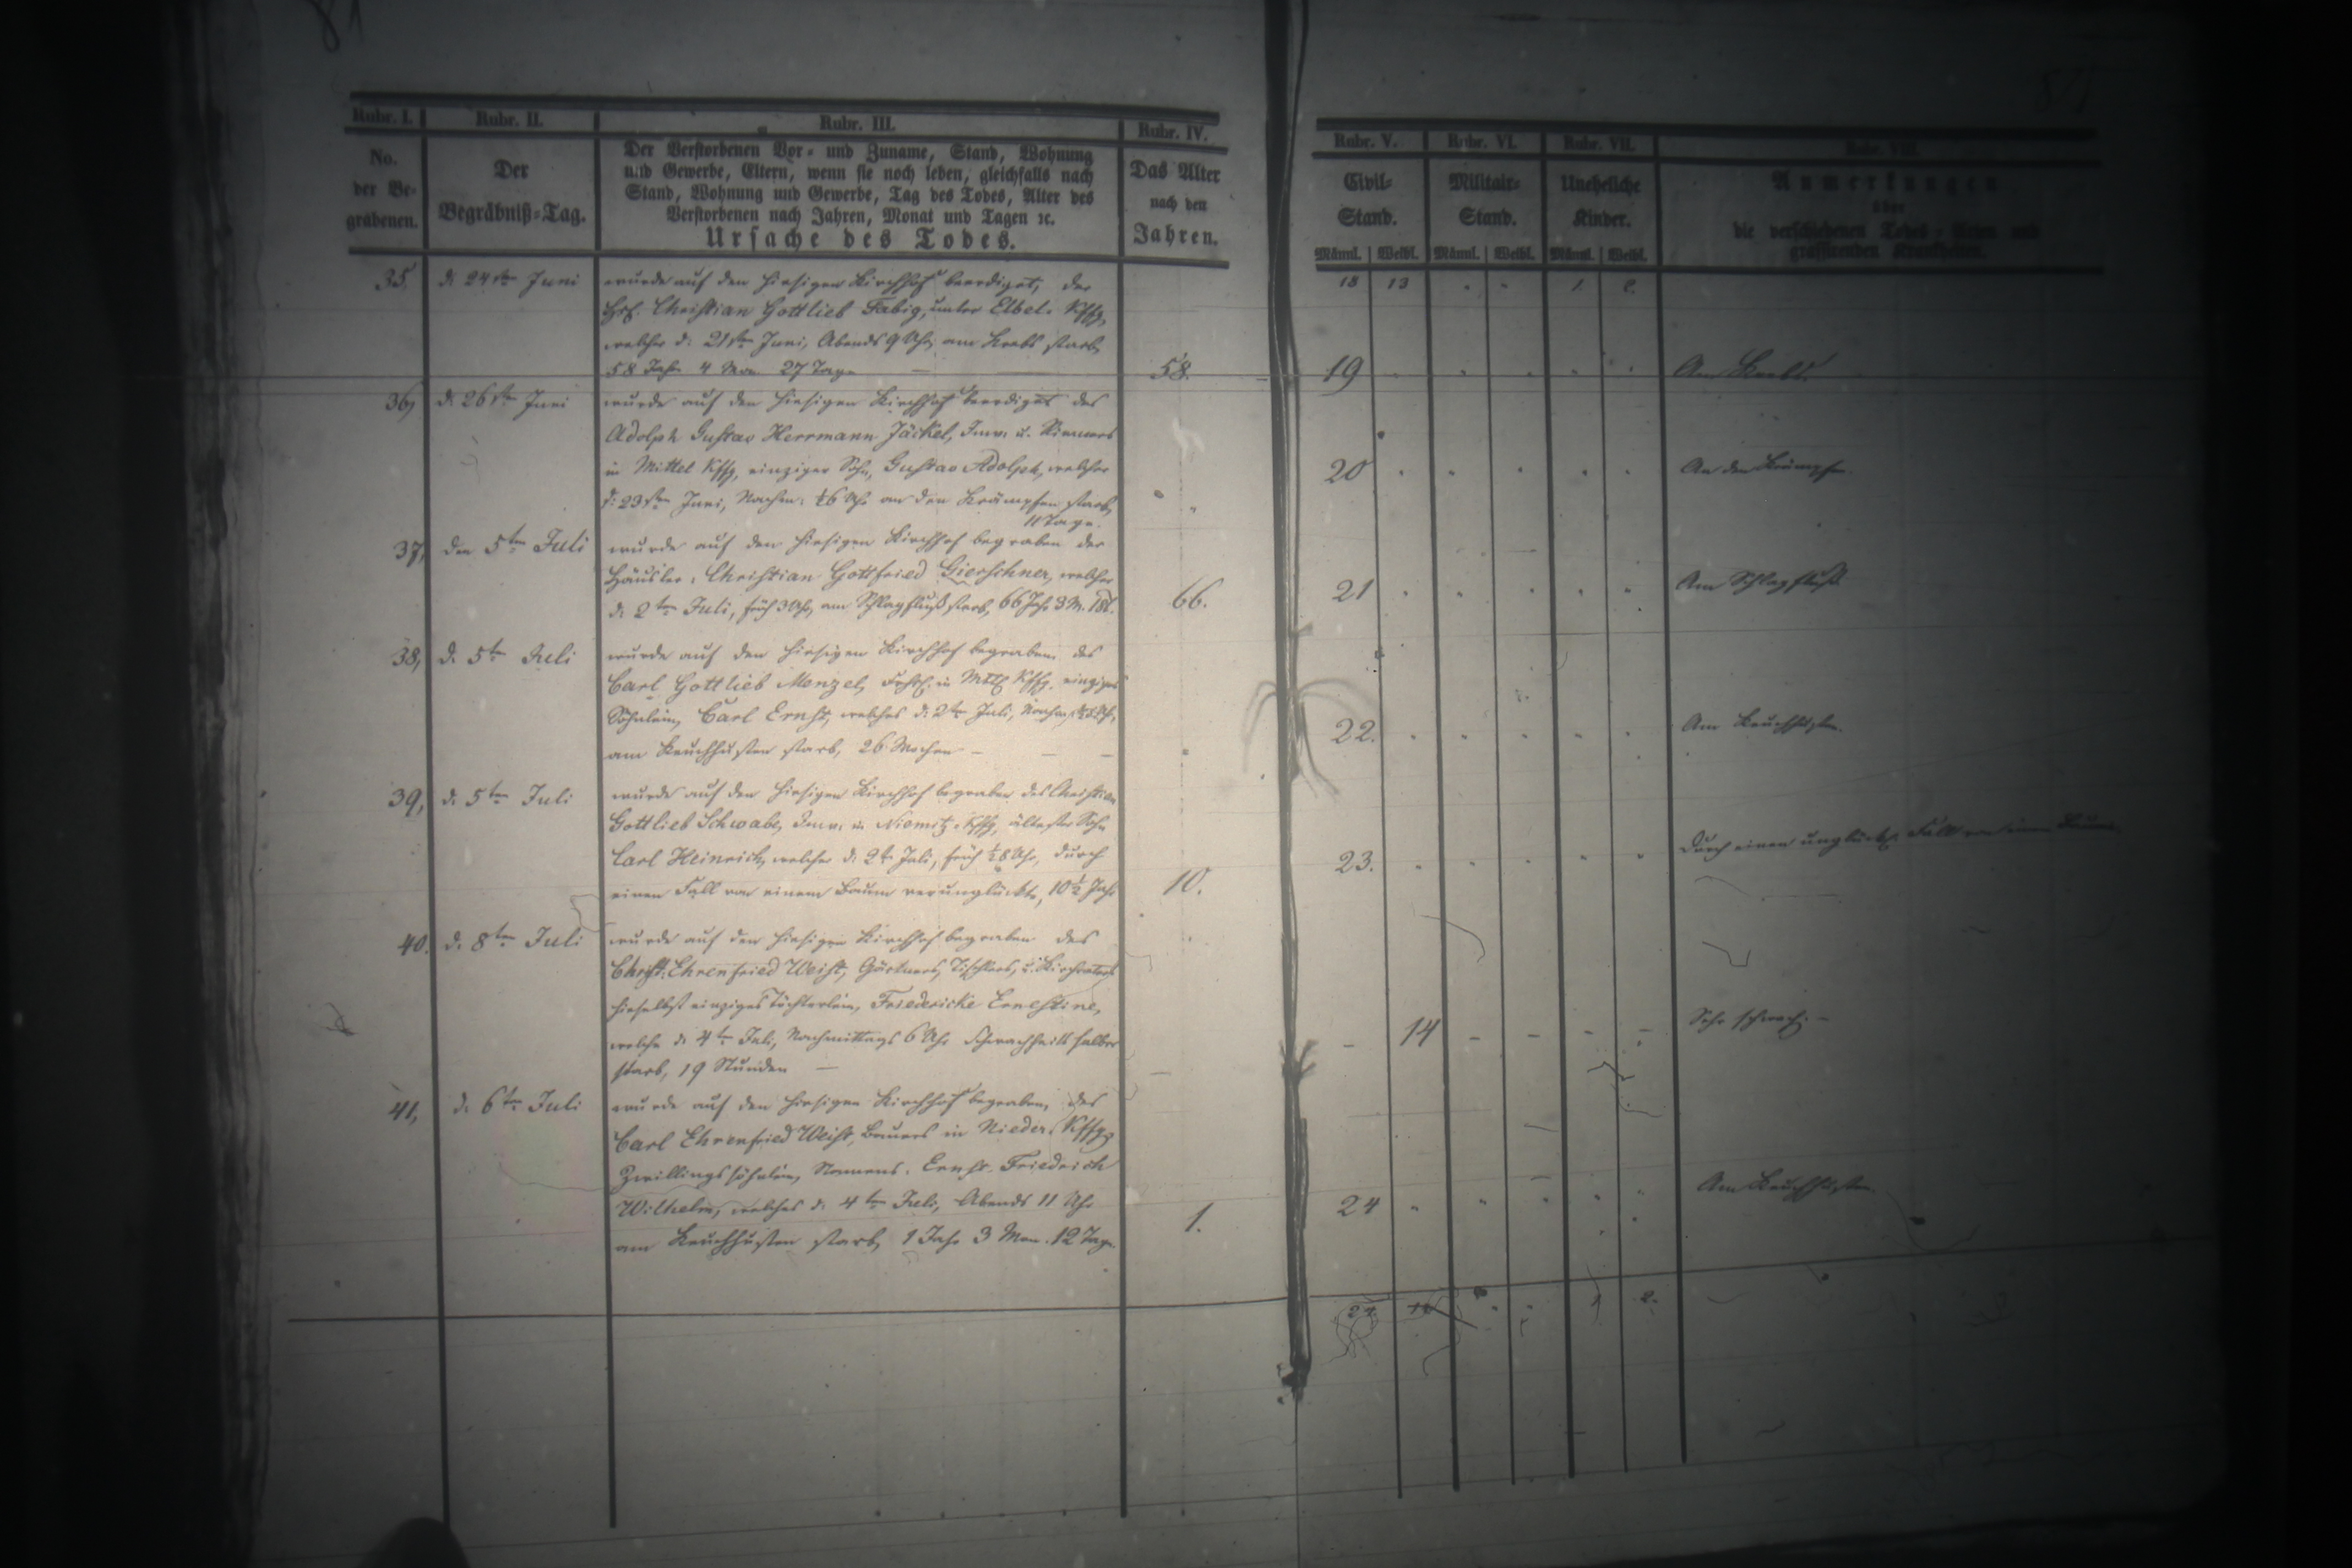 81
Rubr. I. Rubr. II. Rubr. III. Rubr. IV. Rubr. V. Rubr. VI. Rubr. VII. Rubr. VIII.
No.
der Be-
grabenen.
Der
Begräbniß-Tag.
Der Verstorbenen Vor- und Zuname, Stand, Wohnung
und Gewerbe, Eltern, wenn sie noch leben, gleichfalls nach
Stand, Wohnung und Gewerbe, Tag des Todes, Alter des
Verstorbenen nach Jahren, Monat und Tagen ꝛc.
Ursache des Todes.
Das Alter
nach den
Jahren.
Civil-
Stand.
Männl. Weibl.
Militair-
Stand.
Männl. Weibl.
Uneheliche
Kinder.
Männl. Weibl.
Anmerkungen
über
die verschiedenen Todes-Arten und
grassirenden Krankheiten.
18 13 " " 1. 2.
35, d. 24sten Juni wurde auf den hiesigen Kirchhof beerdiget, der
Christian Gottlieb Fabig, unter Elbel. Kffg,
welcher d. 21sten Juni, Abends 9 Uhr, am Krebs starb,
58 Jahr 4 Mon. 27 Tage — 58. 19 Am Krebs.
36, d. 26sten Juni wurde auf den hiesigen Kirchhof beerdiget des
Adolph Gustav Herrmann Jäckel, Inw. u. Riemers
in Mittel Kffg, einziger Sohn, Gustav Adolph, welcher 20 An den Krämpfen.
d. 23sten Juni, Nachm. ½6 Uhr an den Krämpfen starb, "
11 Tage.
37, den 5ten Juli wurde auf den hiesigen Kirchhof begraben der
Häusler, Christian Gottfried Gierschner, welcher
d. 2ten Juli, früh 3 Uhr, am Schlagfluß starb, 66 Jahr 3 M. 18 T. 66. 21 Am Schlagfluß
38, d. 5ten Juli wurde auf den hiesigen Kirchhof begraben des
Carl Gottlieb Menzel, in Mttl Kffg. einziges
Söhnlein, Carl Ernst, welches d. 2ten Juli, Nachm.
am Keuchhusten starb, 26 Wochen — 22. Am Keuchhusten.
39, d. 5ten Juli wurde auf den hiesigen Kirchhof begraben des Christian
Gottlieb Schwabe, Inw. in Niemitz-Kffg, ältester Sohn
Carl Heinrich, welcher d. 2ten Juli, früh ½8 Uhr, durch
einen Fall von einem Baum verunglückte, 10½ Jahr 10. 23. Durch einen unglückl. Fall von einem Baume.
40. d. 8ten Juli wurde auf den hiesigen Kirchhof begraben des
Christ. Ehrenfried Weist, Gärtners, Tischlers, u. Kirchvaters
hieselbst einziges Töchterlein, Friedericke Ernestine,
welche d. 4ten Juli, Nachmittags 6 Uhr Schwachheits halber – 14 – – – – Sehr schwach. –
starb, 19 Stunden —
41, d. 6ten Juli wurde auf den hiesigen Kirchhof begraben, des
Carl Ehrenfried Weist, Bauers in Nieder. Kffg
Zwillingssöhnlein, Namens. Ernst Friedrich
Wilhelm, welches d. 4ten Juli, Abends 11 Uhr
am Keuchhusten starb, 1 Jahr 3 Mon. 12 Tage. 1. 24 Am Keuchhusten
24. 14 " " 1 2.